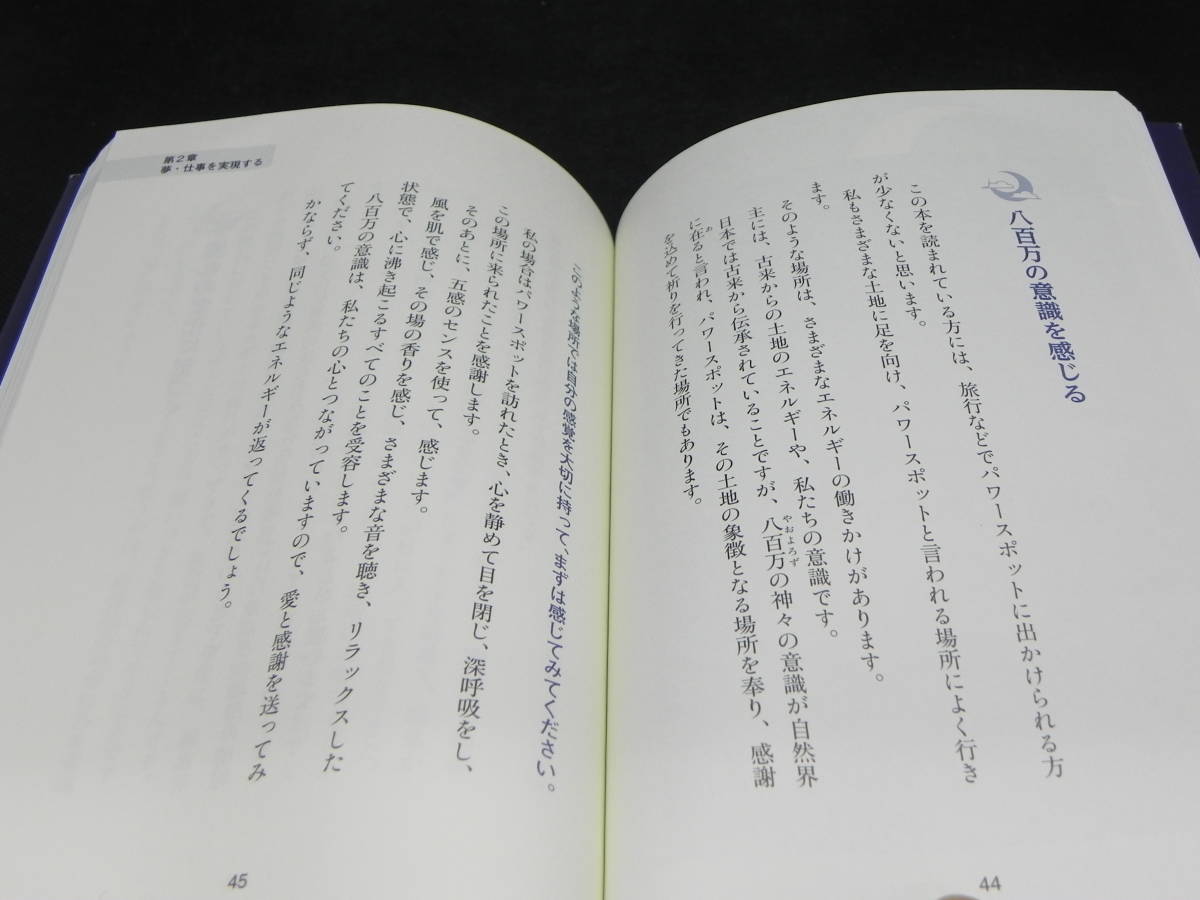 八百万の意識を感じる
この本を読まれている方には、旅行などでパワースポットに出かけられる方
が少なくないと思います。
私もさまざまな土地に足を向け、パワースポットと言われる場所によく行き
ます。
そのような場所は、さまざまなエネルギーの働きかけがあります。
主には、古来からの土地のエネルギーや、私たちの意識です。
日本では古来から伝承されていることですが、八百万の神々の意識が自然界
やおよろず
に在ると言われ、パワースポットは、その土地の象徴となる場所を奉り、感謝
あ
を込めて祈りを行ってきた場所でもあります。
44
第2章
夢・仕事を実現する
このような場所では自分の感覚を大切に持って、まずは感じてみてください。
私の場合はパワースポットを訪れたとき、心を静めて目を閉じ、深呼吸をし、
この場所に来られたことを感謝します。
そのあとに、五感のセンスを使って、感じます。
風を肌で感じ、その場の香りを感じ、さまざまな音を聴き、リラックスした
状態で、心に沸き起こるすべてのことを受容します。
八百万の意識は、私たちの心とつながっていますので、愛と感謝を送ってみ
てください。
かならず、同じようなエネルギーが返ってくるでしょう。
45